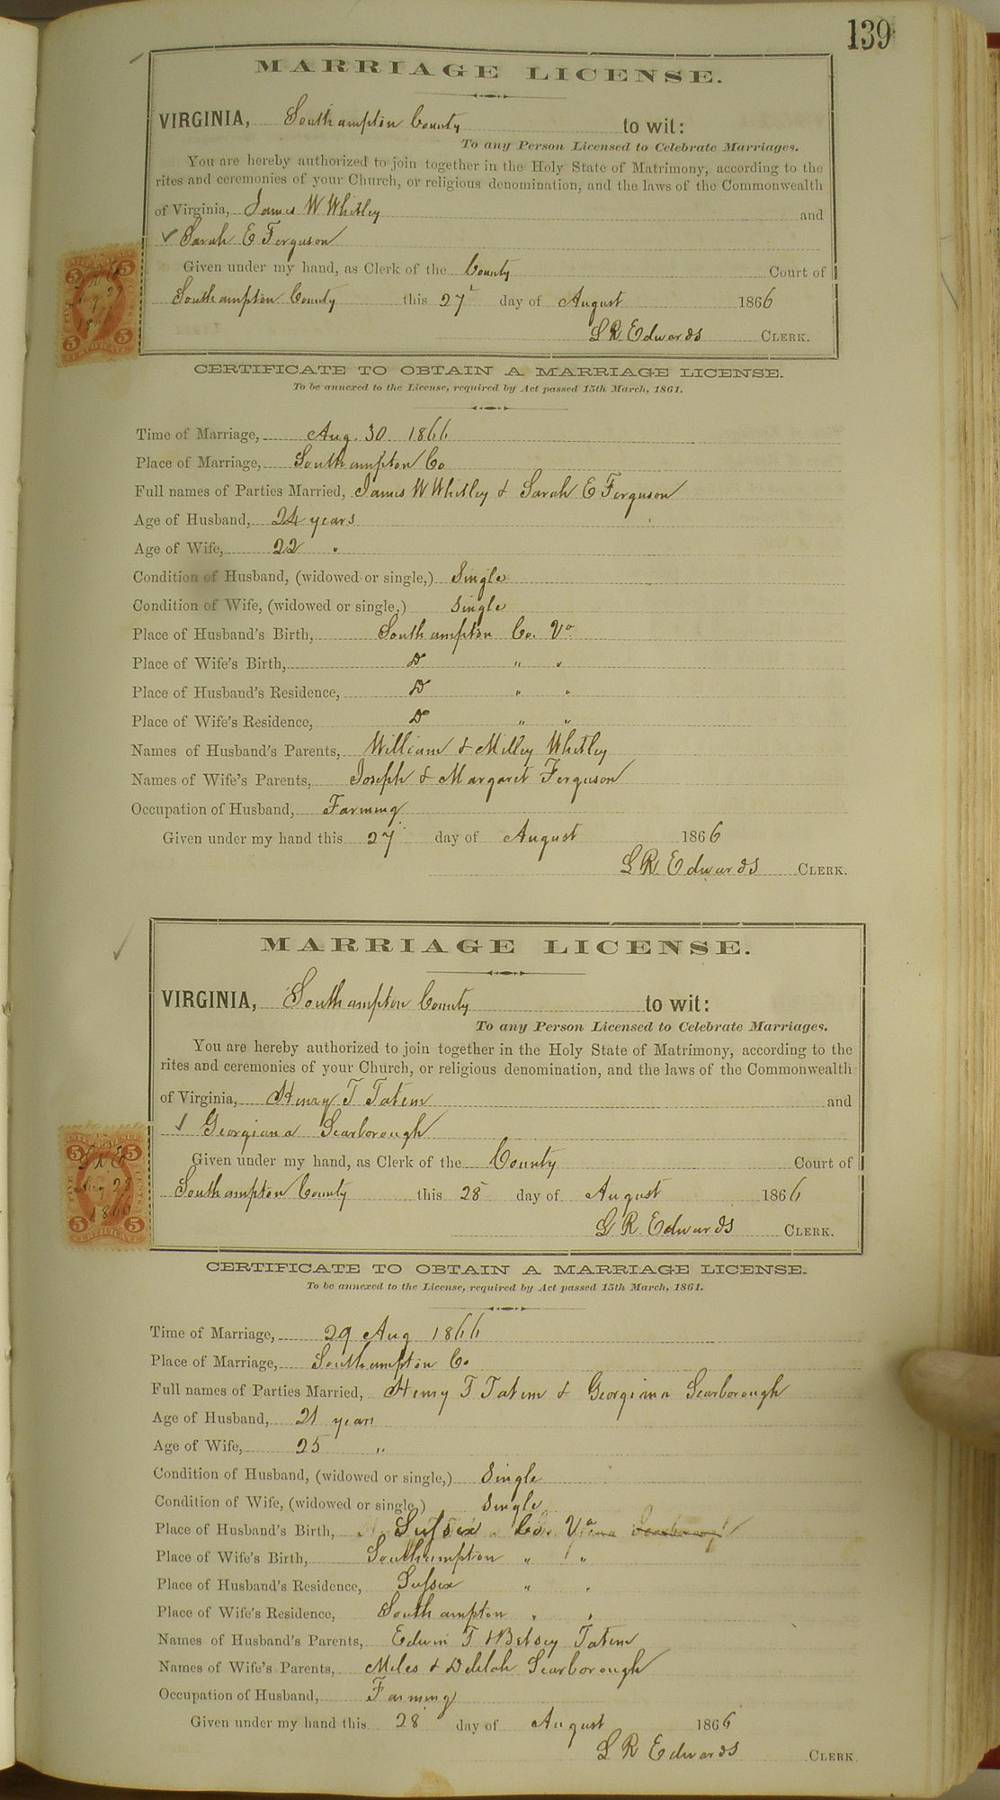 139
MARRIAGE LICENSE.
VIRGINIA, Southampton County to wit:
To any Person Licensed to Celebrate Marriages.
You are hereby authorized to join together in the Holy State of Matrimony, according to the
rites and ceremonies of your Church, or religious denomination, and the laws of the Commonwealth
of Virginia, James W Whitley and
✓ Sarah E Ferguson
Given under my hand, as Clerk of the County Court of
Southampton County this 27 day of August 1866
L R Edwards CLERK.
CERTIFICATE TO OBTAIN A MARRIAGE LICENSE.
To be annexed to the License, required by Act passed 15th March, 1861.
Time of Marriage, Aug. 30 1866
Place of Marriage, Southampton Co
Full names of Parties Married, James W Whitley & Sarah E Ferguson
Age of Husband, 24 years
Age of Wife, 22 "
Condition of Husband, (widowed or single,) Single
Condition of Wife, (widowed or single,) Single
Place of Husband's Birth, Southampton Co. Va
Place of Wife's Birth, Do " "
Place of Husband's Residence, Do " "
Place of Wife's Residence, Do " "
Names of Husband's Parents, William & Milley Whitley
Names of Wife's Parents, Joseph & Margaret Ferguson
Occupation of Husband, Farming
Given under my hand this 27 day of August 1866
L R Edwards CLERK.
MARRIAGE LICENSE.
VIRGINIA, Southampton County to wit:
To any Person Licensed to Celebrate Marriages.
You are hereby authorized to join together in the Holy State of Matrimony, according to the
rites and ceremonies of your Church, or religious denomination, and the laws of the Commonwealth
of Virginia, Henry T Tatem and
✓ Georgiana Scarborough
Given under my hand, as Clerk of the County Court of
Southampton County this 28 day of August 1866
L R Edwards CLERK.
CERTIFICATE TO OBTAIN A MARRIAGE LICENSE.
To be annexed to the License, required by Act passed 15th March, 1861.
Time of Marriage, 29 Aug 1866
Place of Marriage, Southampton Co
Full names of Parties Married, Henry T Tatem & Georgiana Scarborough
Age of Husband, 21 years
Age of Wife, 25 "
Condition of Husband, (widowed or single,) Single
Condition of Wife, (widowed or single,) Single
Place of Husband's Birth, Sussex Co. Va
Place of Wife's Birth, Southampton " "
Place of Husband's Residence, Sussex " "
Place of Wife's Residence, Southampton " "
Names of Husband's Parents, Edwin T & Betsey Tatem
Names of Wife's Parents, Miles & Delilah Scarborough
Occupation of Husband, Farming
Given under my hand this 28 day of August 1866
L R Edwards CLERK